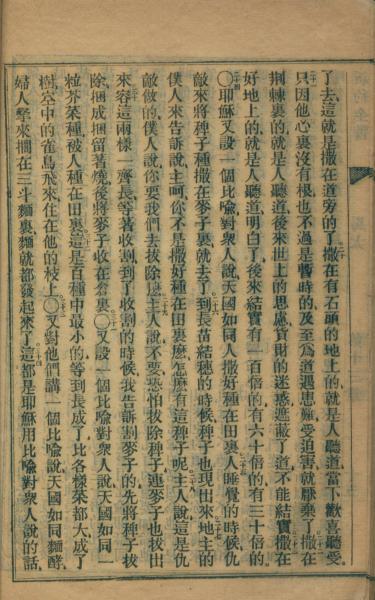 了去、這就是撒在道旁的了、撒在有石頭的地上的、就是人聽道、當下歡喜聽受、
只因他心裏沒有根、也不過是暫時的、及至爲道遇患難、受迫害、就厭棄了、撒在
荆棘裏的、就是人聽道、後來世上的思慮、貨財的迷惑、遮蔽了道、不能結實、撒在
好地上的、就是人聽道、明白了、後來結實、有一百倍的、有六十倍的、有三十倍的、
○耶穌又設一個比喻、對衆人說、天國如同人撒好種在田裏、人睡覺的時候、仇
敵來將稗子種撒在麥子裏、就去了、到長苗結穗的時候、稗子也現出來、地主的
僕人來告訴說、主呵、你不是撒好種在田裏麽、怎麽有這稗子呢、主人說、這是仇
敵做的、僕人說、你要我們去拔除麽、主人說、不要、恐怕拔除稗子、連麥子也拔出
來、容這兩樣一齊長、等著收割、到了收割的時候、我告訴割麥子的、先將稗子拔
除、捆成捆、留著燒、後將麥子收在倉裏、○又設一個比喻、對衆人說、天國如同一
粒芥菜種、被人種在田裏、這是百種中最小的、等到長成了、比各樣菜都大、成了
樹、空中的雀鳥飛來、住在他的枝上、○又對他們講一個比喻說、天國如同麵酵、
婦人拏來擱在三斗麵裏、麵就都發起來了、這都是耶穌用比喻對衆人說的話、